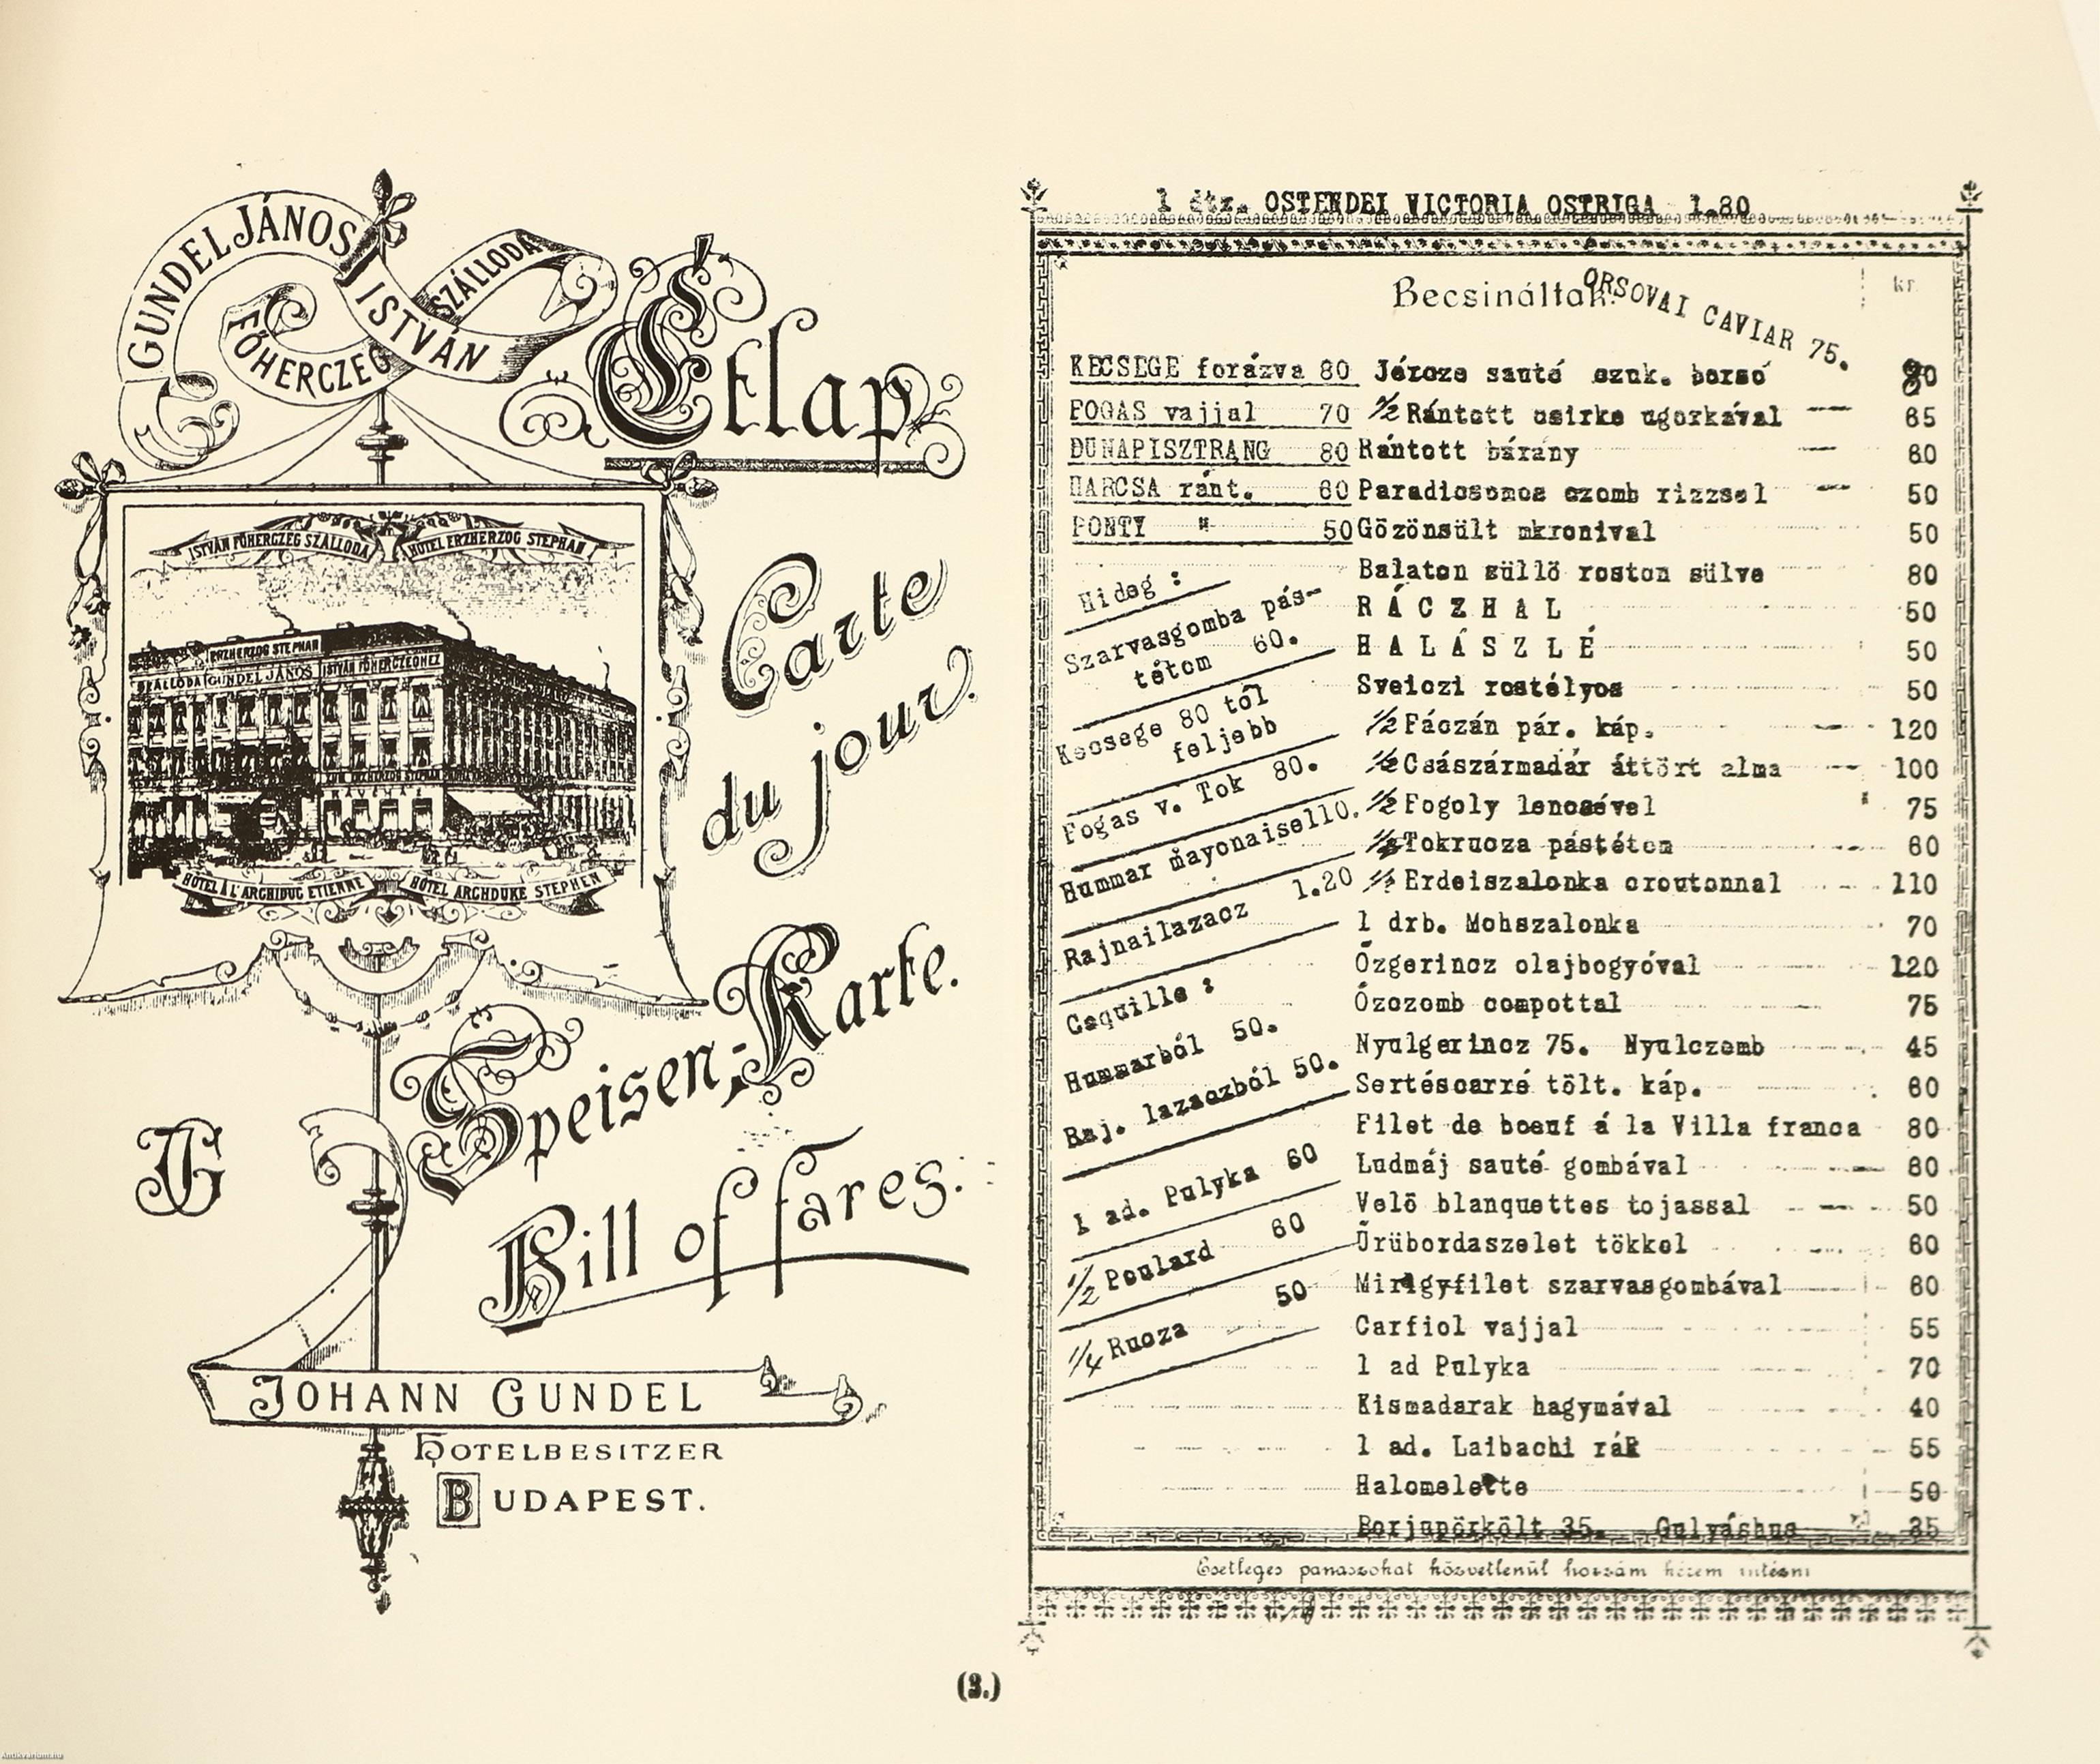 GUNDEL JÁNOS
ISTVÁN
FŐHERCZEG
SZÁLLODA
Étlap
ISTVÁN FŐHERCZEG SZÁLLODA HOTEL ERZHERZOG STEPHAN
ERZHERZOG STEPHAN
SZÁLLODA GUNDEL JÁNOS ISTVÁN FŐHERCZEGHEZ
KÁVÉHÁZ
HÔTEL À L'ARCHIDUC ETIENNE HÔTEL ARCHDUKE STEPHEN
Carte
du jour.
Speisen-Karte.
JG
Bill of fares.
JOHANN GUNDEL
HOTELBESITZER
BUDAPEST.
1 étz. OSTENDEI VICTORIA OSTRIGA 1.80
Becsináltak.
ORSOVAI CAVIAR 75.
kr.
KECSEGE forázva 80
FOGAS vajjal 70
DUNAPISZTRANG 80
HARCSA ránt. 60
PONTY " 50
Hideg :
Szarvasgomba pás-
tétom 60.
Kecsege 80 tól
feljebb
Fogas v. Tok 80.
Hummar mayonaisel10.
Rajnailazacz 1.20
Coquille :
Hummarból 50.
Raj. lazaczból 50.
1 ad. Pulyka 60
1/2 Poulard 60
1/4 Rucza 50
Jércze sauté czuk. borsó 80
1/2 Rántott csirke ugorkával 65
Rántott bárány 60
Paradicsomos czomb rizzsel 50
Gőzönsült mkronival 50
Balaton süllő roston sülve 80
RÁCZHAL 50
HALÁSZLÉ 50
Sveiczi rostélyos 50
1/2 Fáczán pár. káp. 120
1/2 Császármadár áttört alma 100
1/2 Fogoly lencsével 75
Tokrucza pástétom 60
Erdeiszalonka croutonnal 110
1 drb. Mohszalonka 70
Őzgerincz olajbogyóval 120
Őzczomb compottal 75
Nyulgerincz 75. Nyulczomb 45
Sertéscarré tölt. káp. 60
Filet de boeuf á la Villa franca 80
Ludmáj sauté gombával 80
Velő blanquettes tojassal 50
Ürübordaszelet tökkel 60
Mirigyfilet szarvasgombával 60
Carfiol vajjal 55
1 ad Pulyka 70
Kismadarak hagymával 40
1 ad. Laibachi rák 55
Halomelette 50
Borjupörkölt 35. Gulyáshus 35
Esetleges panaszokat közvetlenül hozzám kérem intézni
(3.)
Antikvarium.hu